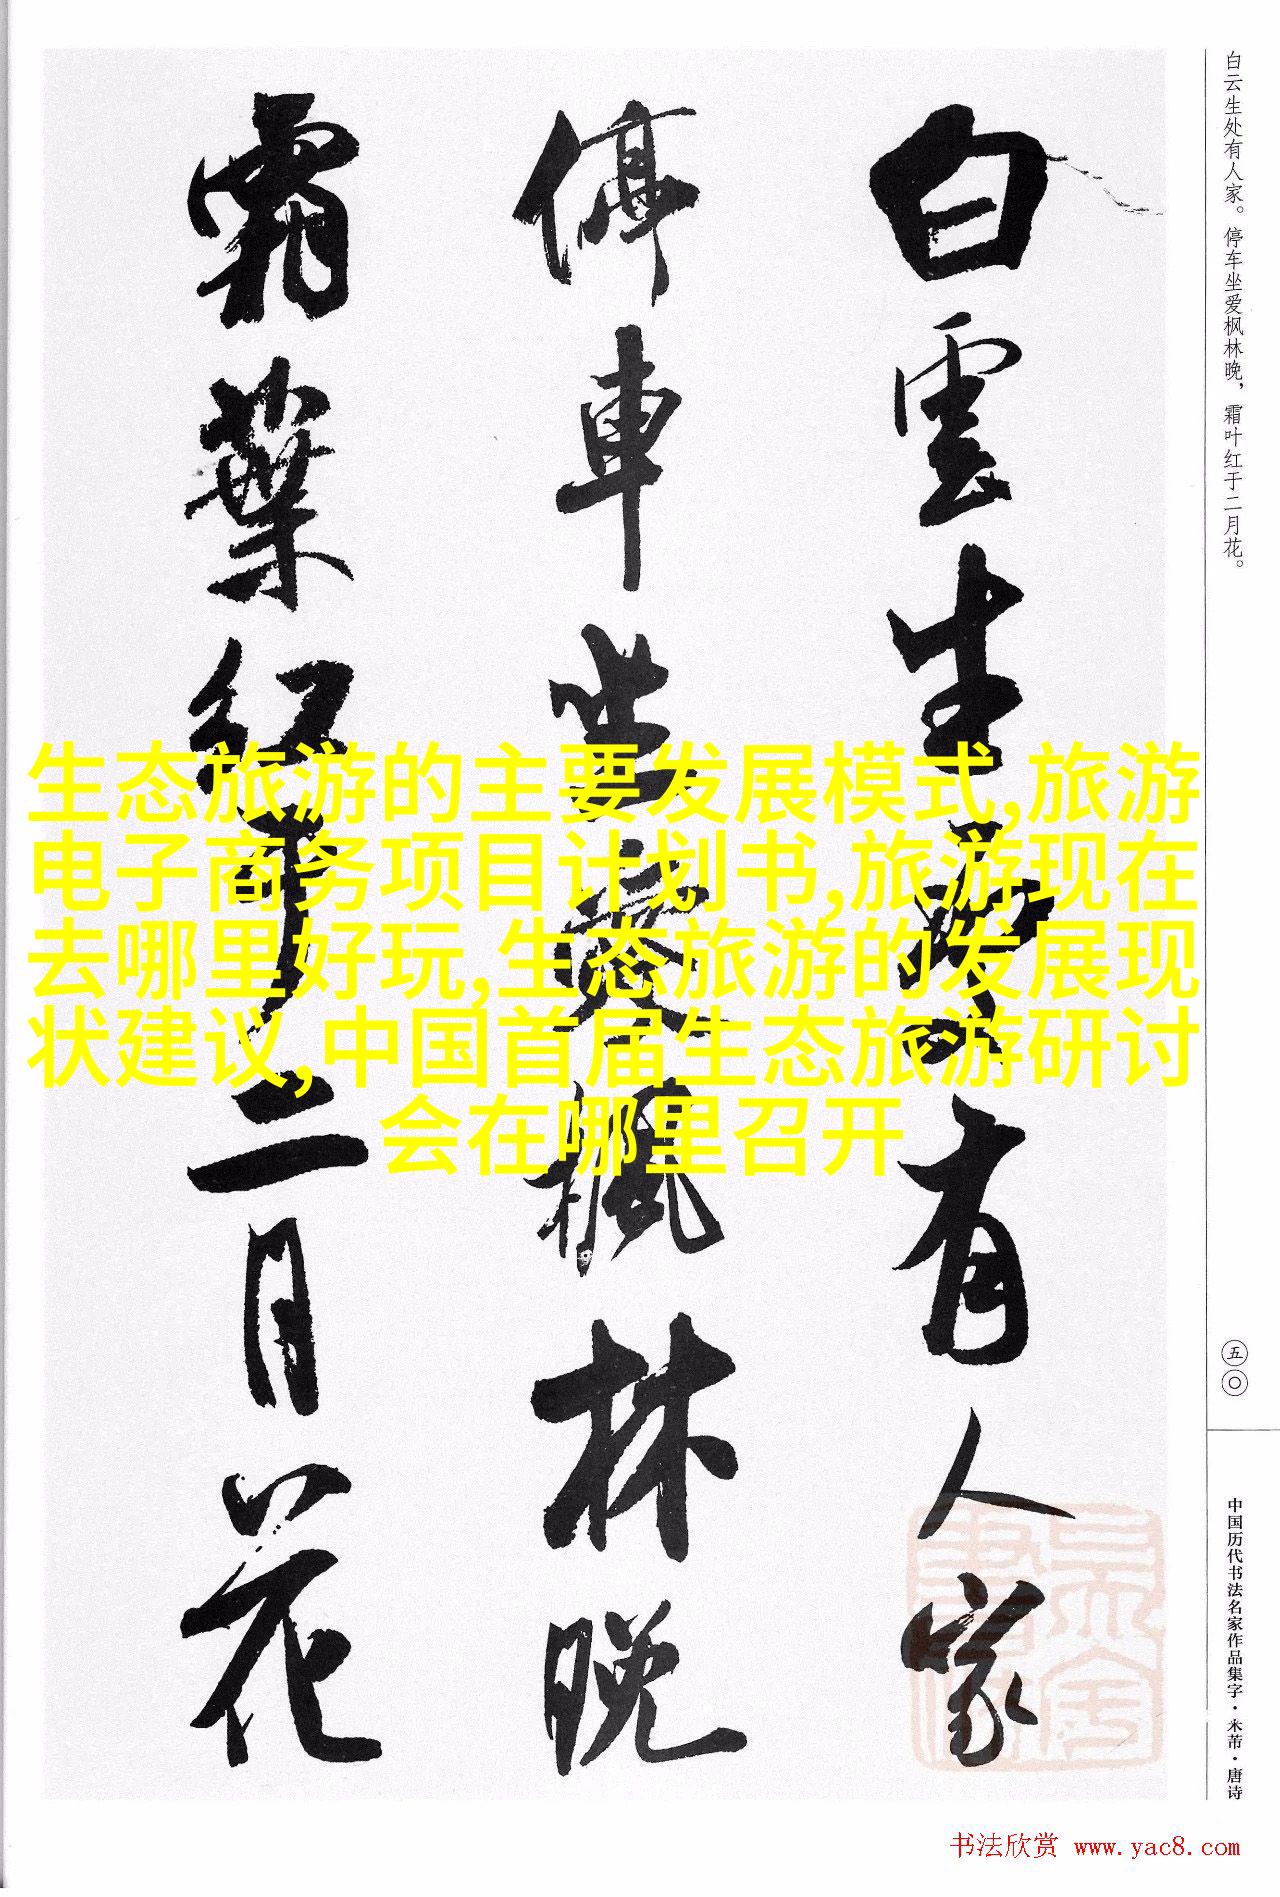 白雲生處有人家
停車坐愛楓林晚
霜葉紅于二月花
白云生处有人家。停车坐爱枫林晚，霜叶红于二月花。
五〇
中国历代书法名家作品集字·米芾·唐诗
生态旅游的主要发展模式,旅游
电子商务项目计划书,旅游现在
去哪里好玩,生态旅游的发展现
状建议,中国首届生态旅游研讨
会在哪里召开
书法欣赏 www.yac8.com